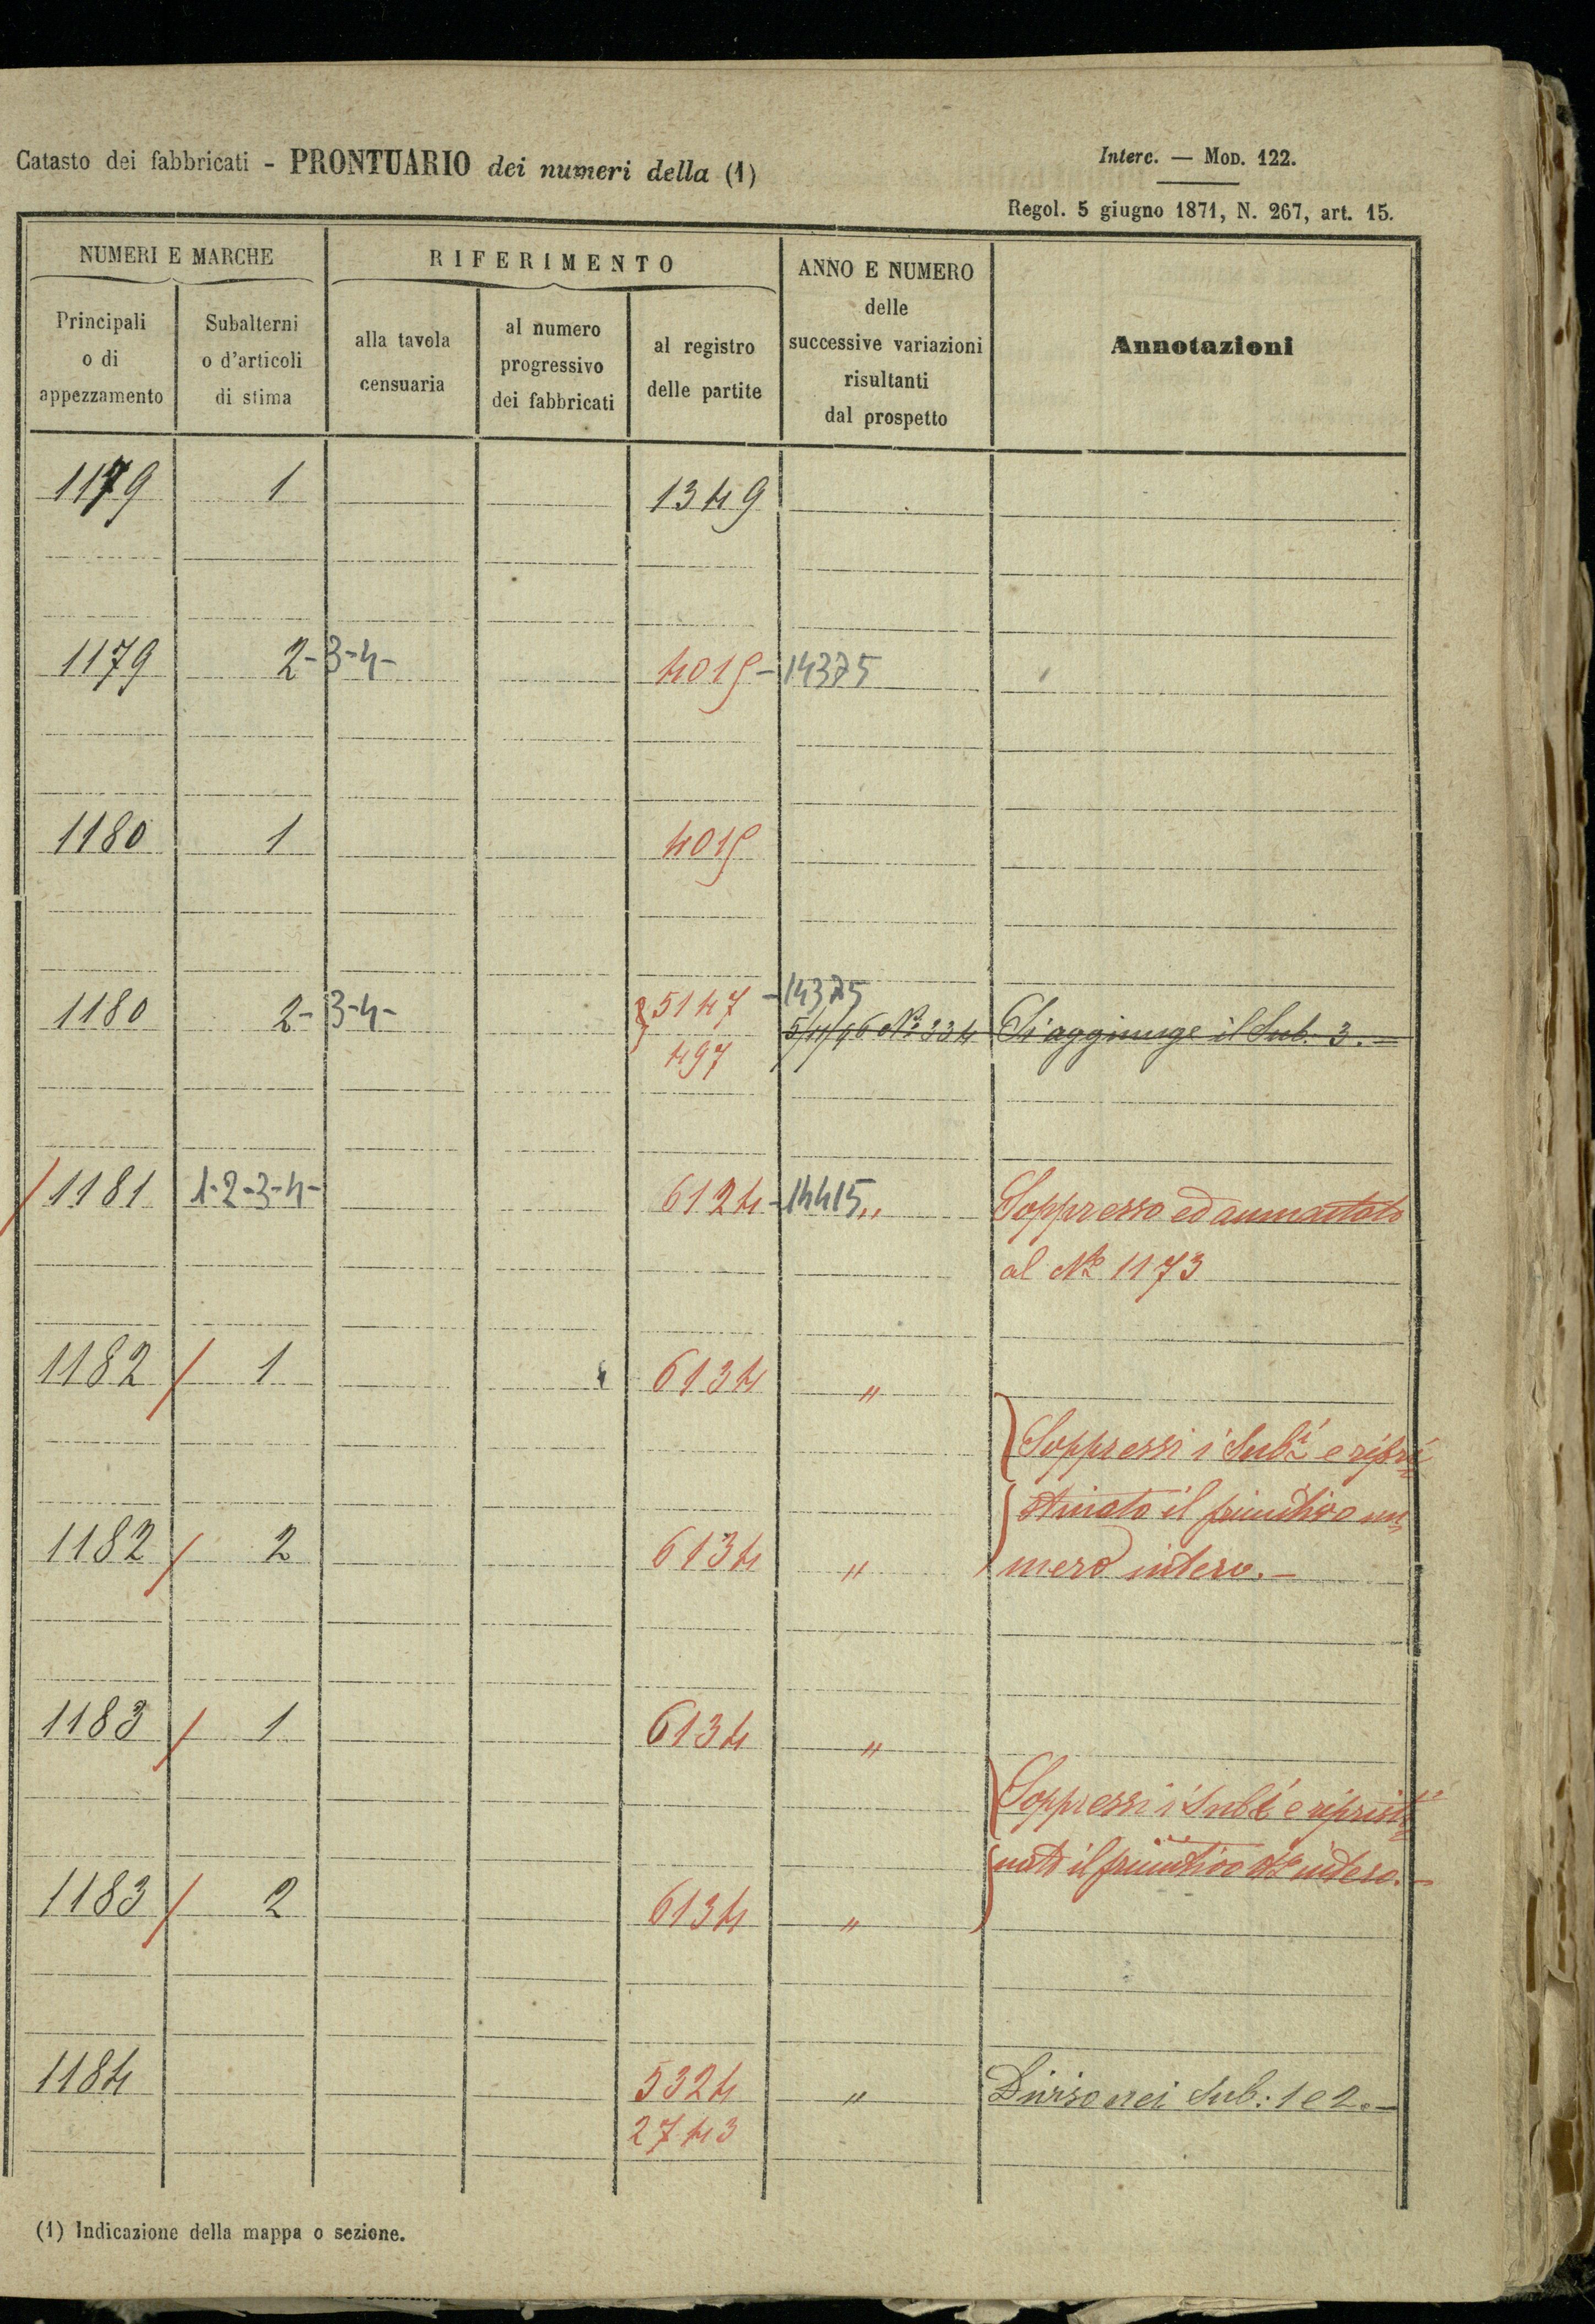 Catasto dei fabbricati - PRONTUARIO dei numeri della (1)
Interc. — Mod. 122.
Regol. 5 giugno 1871, N. 267, art. 15.
NUMERI E MARCHE
RIFERIMENTO
ANNO E NUMERO
delle
successive variazioni
risultanti
dal prospetto
Annotazioni
Principali
o di
appezzamento
Subalterni
o d'articoli
di stima
alla tavola
censuaria
al numero
progressivo
dei fabbricati
al registro
delle partite
1179 1 1349
1179 2-3-4- 4015-14375
1180 1 4015
1180 2-3-4- 5147 -14375
5/11/96 No 334 Si aggiunge il Sub. 3.-
497
1181 1-2-3-4- 6124-14415 " Soppresso ed
al No 1173
1182 / 1 6134 "
Soppressi i Subi e ripri
stinato il primitivo nu
1182 / 2 6134 " mero intero.-
1183 / 1 6134 "
Soppressi i Subi e ripristi
nato il primitivo No intero.-
1183 / 2 6134 "
1184 5324 " Diviso nei Sub: 1 e 2.-
2743
(1) Indicazione della mappa o sezione.